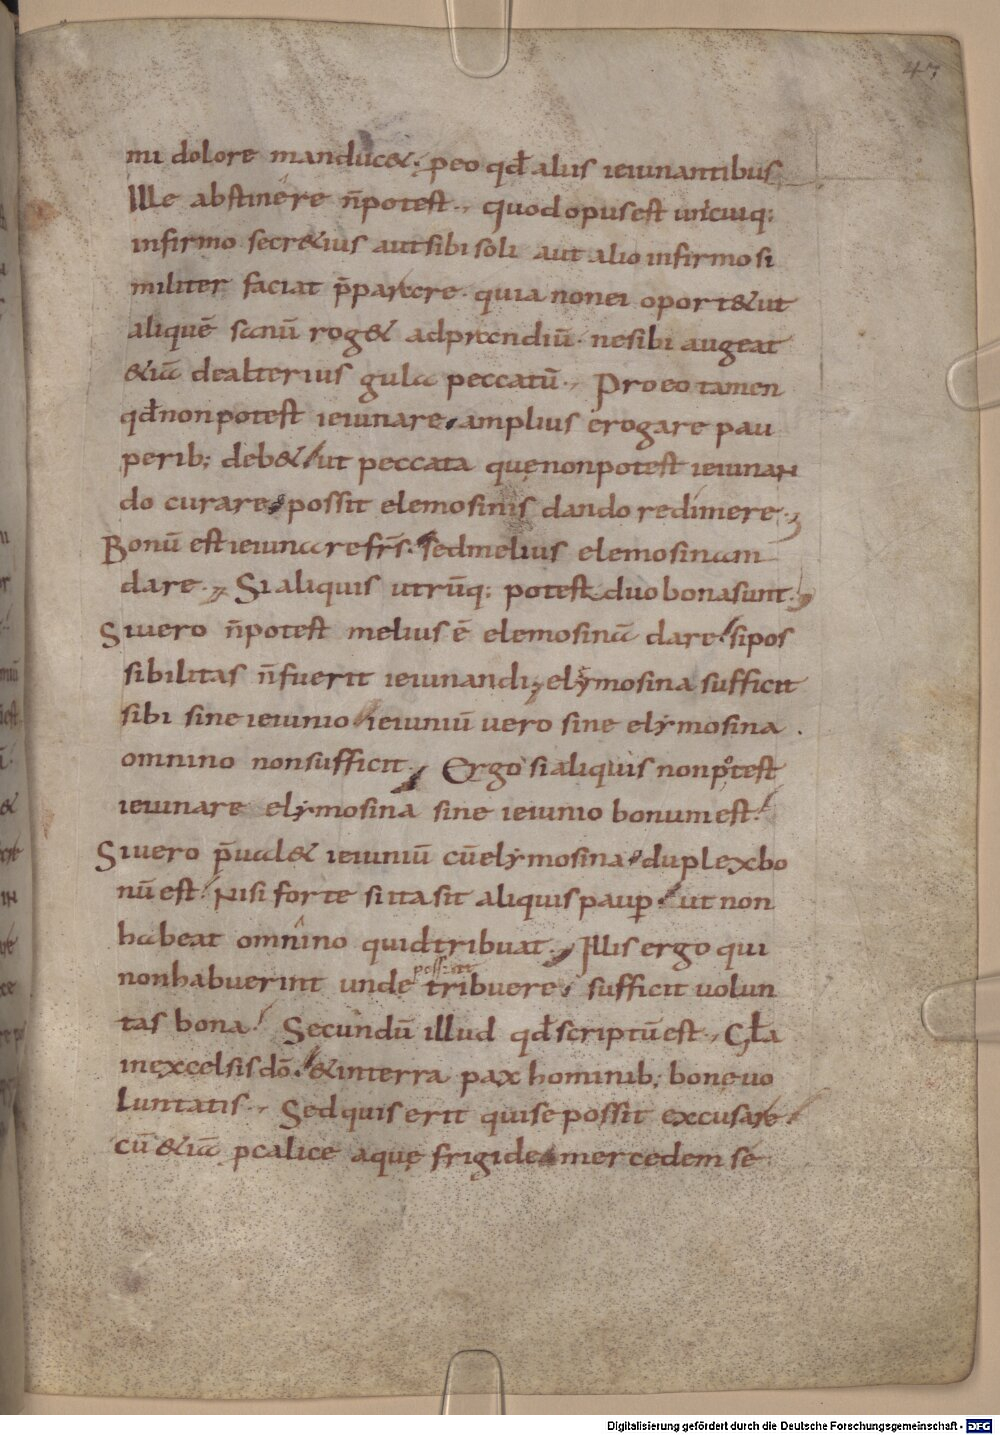 47
mi dolore manduc&. p eo qđ aliis ieiunantibus
Ille abstinere n̄ potest., quod opus est unicuiq;
infirmo secr&ius aut sibi soli aut alio infirmo si
militer faciat p̄parare. quia non ei oport& ut
aliquē sanū rog& ad prandiū. ne sibi augeat
&iā de alterius gula peccatū., Pro eo tamen
qđ non potest ieiunare. amplius erogare pau
perib; deb& ut peccata quę non potest ieiunan
do curare. possit elemosinis dando redimere.,
Bonū est ieiunare frs̄. sed melius elemosinam
dare., Si aliquis utrūq; potest duo bona sunt.,
Si uero n̄ potest melius ē elemosinā dare. si pos
sibilitas n̄ fuerit ieiunandi., elymosina sufficit
sibi sine ieiunio. ieiuniū uero sine elymosina
omnino non sufficit., Ergo si aliquis non potest
ieiunare elymosina sine ieiunio bonum est.
Si uero p̄ual& ieiuniū cū elymosina. duplex bo
nū est. Nisi forte si ita sit aliquis paup. ut non
habeat omnino quid tribuat., Illis ergo qui
possint
non habuerint unde tribuere. sufficit uolun
tas bona. Secundū illud qđ scriptū est., Gła
in excelsis dō. & in terra pax hominib; bone uo
luntatis., Sed quis erit qui se possit excusare.
cū &iā p calice aquę frigide. mercedem se
Digitalisierung gefördert durch die Deutsche Forschungsgemeinschaft - DFG